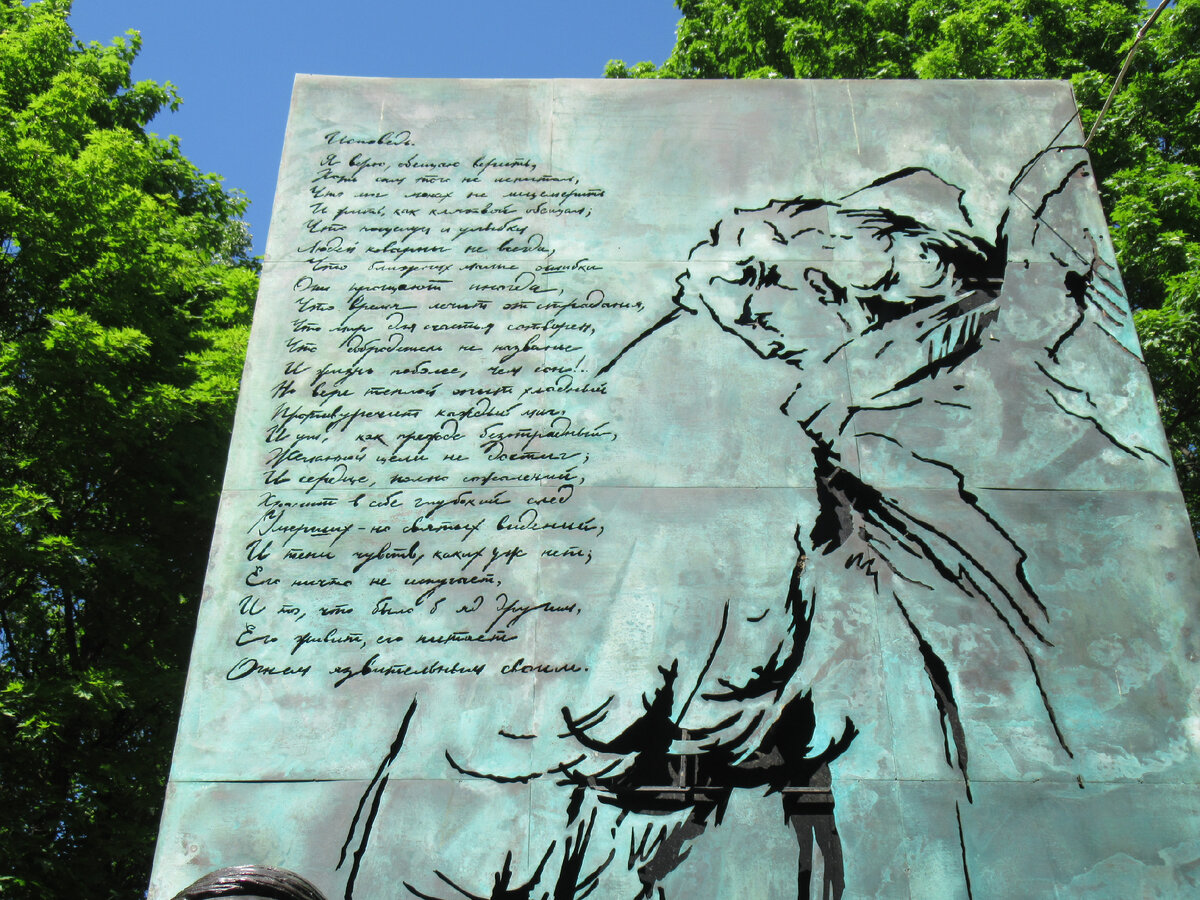 Исповедь.
Я верю, обещаю верить,
Хоть сам того не испытал,
Что мог монах не лицемерить
И жить, как клятвой обещал;
Что поцелуи и улыбки
Людей коварны не всегда,
Что ближних малые ошибки
Они прощают иногда,
Что время лечит от страданья,
Что мир для счастья сотворен,
Что добродетель не названье
И жизнь поболее, чем сон!..
Но вере теплой опыт хладный
Противуречит каждый миг,
И ум, как прежде безотрадный,
Желанной цели не достиг;
И сердце, полно сожалений,
Хранит в себе глубокий след
Умерших - но святых видений,
И тени чувств, каких уж нет;
Его ничто не испугает,
И то, что было б яд другим,
Его живит, его питает
Огнем язвительным своим.